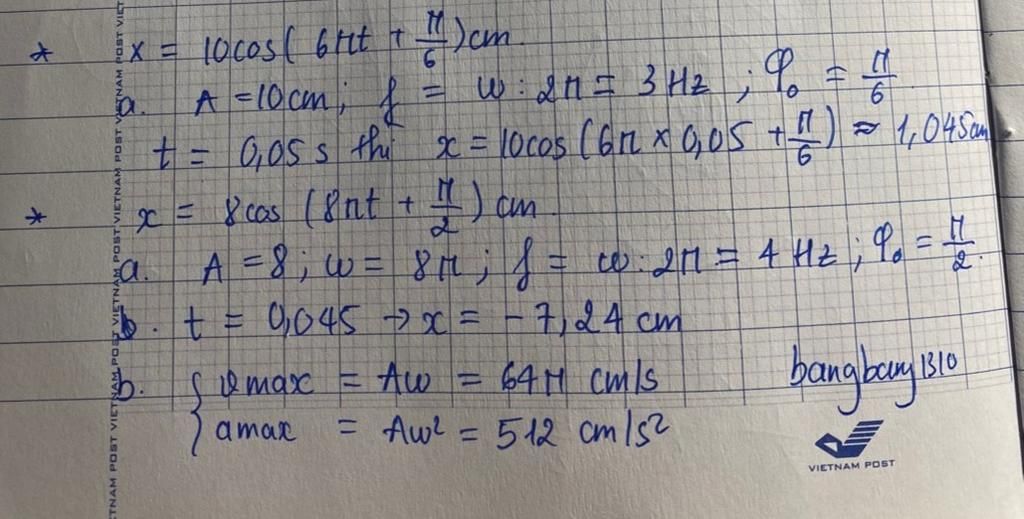 * x = 10cos( 6πt + π/6 ) cm
a. A = 10 cm ; f = ω : 2π = 3 Hz ; φ₀ = π/6
t = 0,05 s thì x = 10cos (6π × 0,05 + π/6 ) ≈ 1,045 cm
* x = 8cos (8πt + π/2 ) cm
a. A = 8 ; ω = 8π ; f = ω : 2π = 4 Hz ; φ₀ = π/2.
b. t = 0,045 → x = - 7,24 cm
b. { vmax = Aω = 64π cm/s
amax = Aω² = 512 cm/s²
bangbany1310
VIETNAM POST
VIETNAM POST VIETNAM POST VIETNAM POST VIETNAM POST